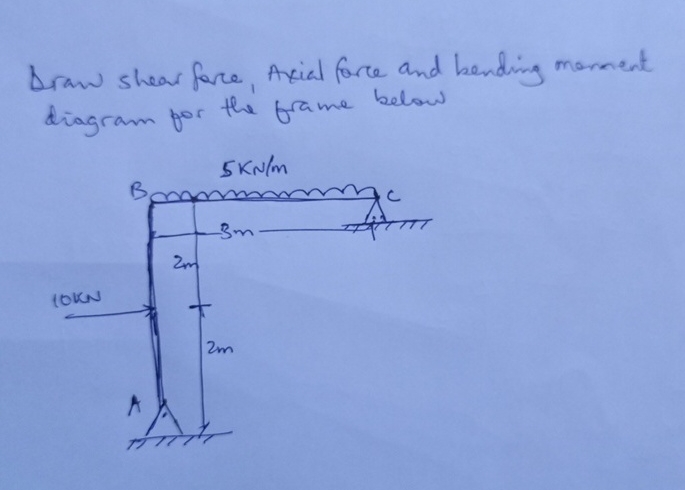 Draw shear force, Axial force and bending moment
diagram for the frame below
5KN/m
B
C
3m
2m
10KN
2m
A